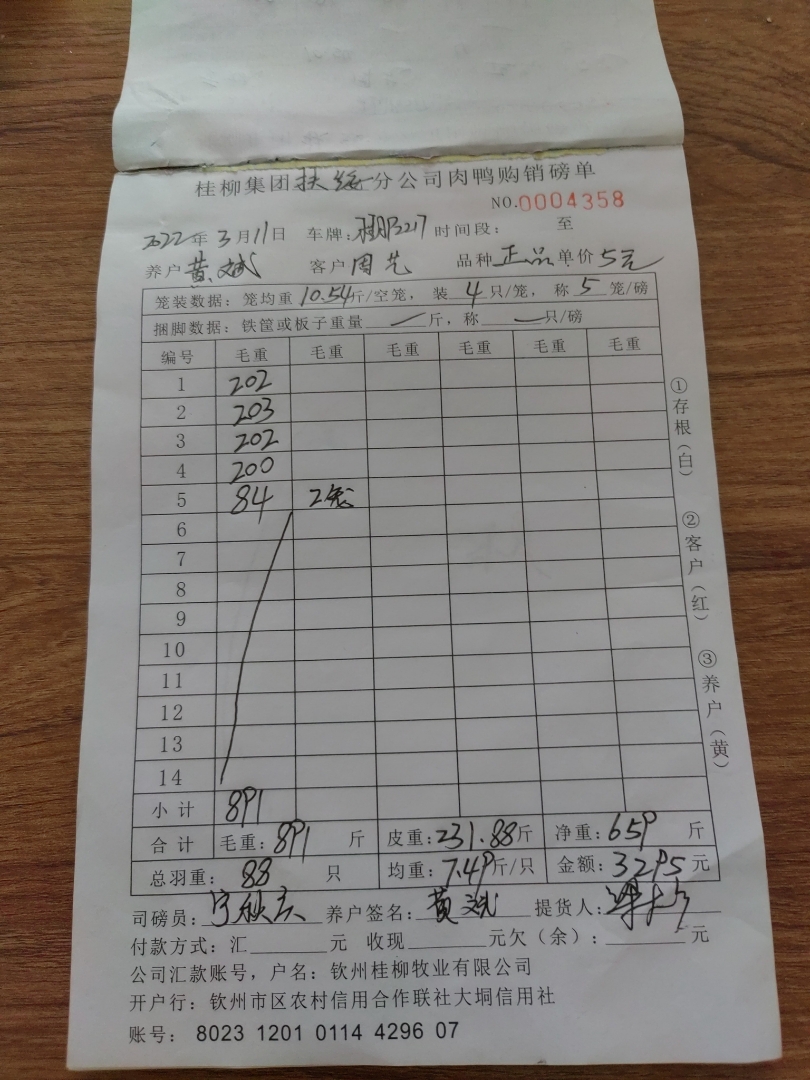 桂柳集团扶绥分公司肉鸭购销磅单
NO.0004358
2022年3月11日 车牌: 时间段: 至
养户黄斌 客户周艺 品种正品单价5元
笼装数据：笼均重10.54斤/空笼，装4只/笼，称5笼/磅
捆脚数据：铁筐或板子重量—斤，称—只/磅
编号 毛重 毛重 毛重 毛重 毛重 毛重
1 202
2 203
3 202
4 200
5 84 2笼
6
7
8
9
10
11
12
13
14
小计 891
合计 毛重：891 斤 皮重：231.88斤 净重：659 斤
总羽重： 88 只 均重：7.49斤/只 金额：3295元
司磅员： 养户签名：黄斌 提货人：
付款方式：汇 元 收现 元欠（余）： 元
公司汇款账号，户名：钦州桂柳牧业有限公司
开户行：钦州市区农村信用合作联社大垌信用社
账号： 8023 1201 0114 4296 07
①存根（白）
②客户（红）
③养户（黄）